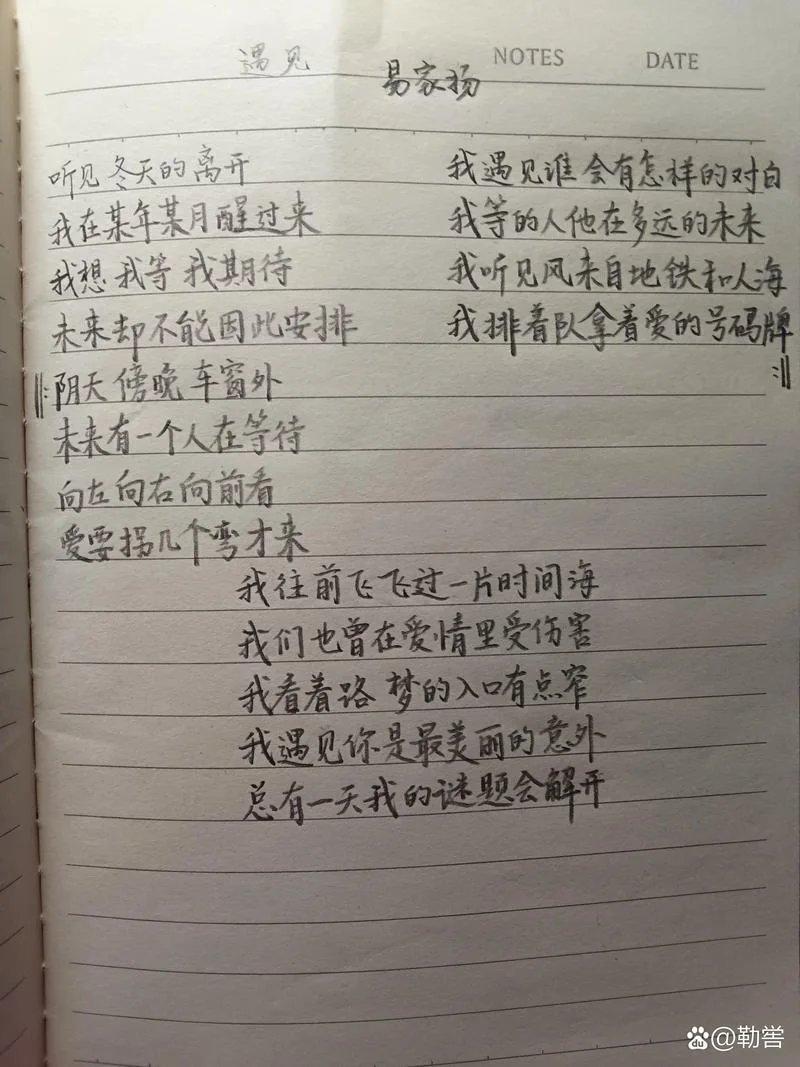 遇见
易家扬
NOTES
DATE
听见冬天的离开
我在某年某月醒过来
我想 我等 我期待
未来却不能因此安排
‖:阴天 傍晚 车窗外
未来有一个人在等待
向左向右向前看
爱要拐几个弯才来
我遇见谁会有怎样的对白
我等的人他在多远的未来
我听见风来自地铁和人海
我排着队拿着爱的号码牌
:‖
我往前飞 飞过一片时间海
我们也曾在爱情里受伤害
我看着路 梦的入口有点窄
我遇见你是最美丽的意外
总有一天我的谜题会解开
du@勒喾